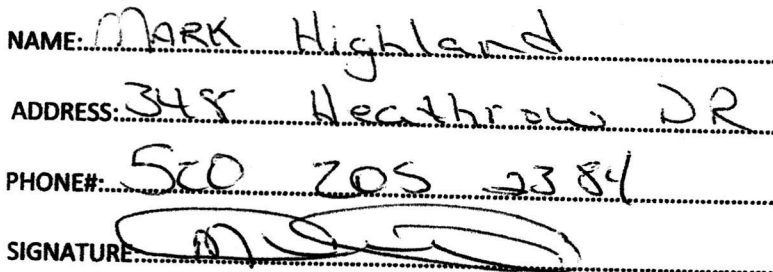 NAME: MARK Highland
ADDRESS: 348 Heathrow DR
PHONE#: 520 205 2384
SIGNATURE: